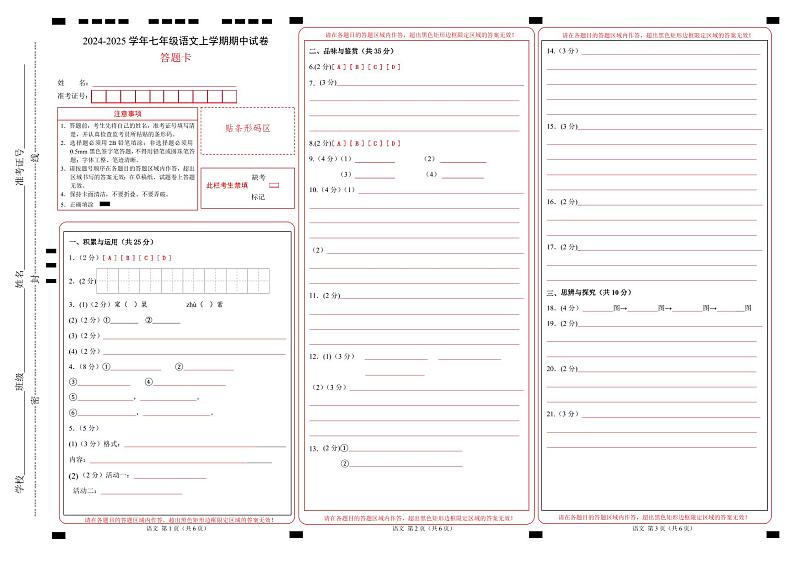 学校
班级
姓名
准考证号
密
封
线
2024-2025 学年七年级语文上学期期中试卷
答题卡
姓 名:
准考证号:
注意事项
1. 答题前,考生先将自己的姓名,准考证号填写清
楚,并认真检查监考员所粘贴的条形码。
2. 选择题必须用 2B 铅笔填涂;非选择题必须用
0.5mm 黑色签字笔答题,不得用铅笔或圆珠笔答
题;字体工整、笔迹清晰。
3. 请按题号顺序在各题目的答题区域内作答,超出
区域书写的答案无效;在草稿纸、试题卷上答题
无效。
4. 保持卡面清洁,不要折叠、不要弄破。
5. 正确填涂
贴条形码区
此栏考生禁填
缺考
标记
一、积累与运用(共 25 分)
1.(2 分)[ A ] [ B ] [ C ] [ D ]
2.(2分)
3.(1)(2 分)窠( )巢 zhù( )蓄
(2)(2 分)① ②
(3)(2 分)
(4)(2 分)
4.(8 分)① ②
③ ④
⑤ ,
⑥ ,
5.(5 分)
(1)(3 分)格式:
内容:
(2)(2 分)活动一:
活动二:
请在各题目的答题区域内作答,超出黑色矩形边框限定区域的答案无效!
语文 第 1 页(共 6 页)
请在各题目的答题区域内作答,超出黑色矩形边框限定区域的答案无效!
二、品味与鉴赏(共 35 分)
6.(2 分)[ A ] [ B ] [ C ] [ D ]
7.(3 分)
8.(2 分)[ A ] [ B ] [ C ] [ D ]
9.(4 分)(1) (2)
(3) (4)
10.(4 分)(1)
(2)
11.(2 分)
12.(1)(3 分)
(2)(3 分)
13.(2 分)①
②
请在各题目的答题区域内作答,超出黑色矩形边框限定区域的答案无效!
语文 第 2 页(共 6 页)
请在各题目的答题区域内作答,超出黑色矩形边框限定区域的答案无效!
14.(3 分)
15.(3 分)
16.(2 分)
17.(2 分)
三、思辨与探究(共 10 分)
18.(4 分) 图→ 图→ 图→ 图
19.(2 分)
20.(2 分)
21.(3 分)
请在各题目的答题区域内作答,超出黑色矩形边框限定区域的答案无效!
语文 第 3 页(共 6 页)